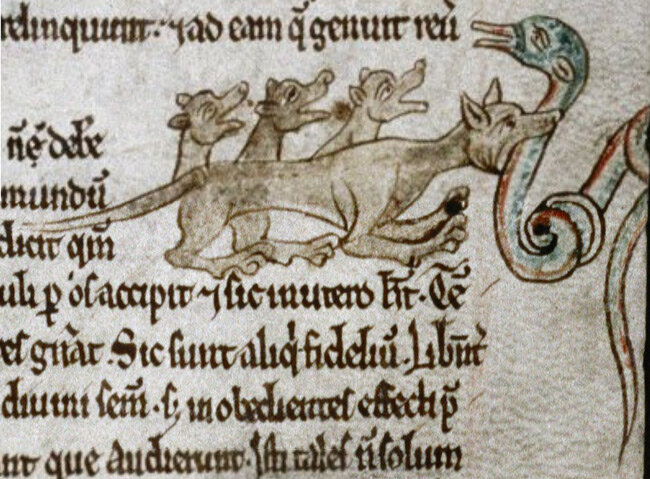 relinquiunt. ⁊ ad eam q̄ genuit reū
n̄c̄ debe
mundū
dicit qm̄
uli ꝑ os accipit ⁊ sic in utero h̄t. Cē
ꝛes gn̄at. Sic sunt aliq̇ fideliū. Libn̄t
diuini sem̄. s; in obedientes effecti ꝑ
unt que audierunt. Isti tales n̄ solum